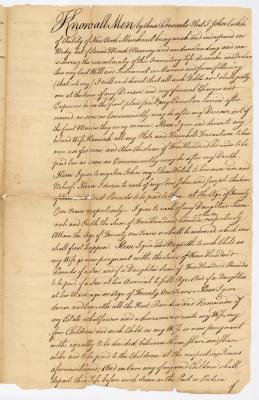 Know all Men by these Presents that I John
of the City of New York Merchant being weak and indisposed in
Body but of Sound Mind Memory and understanding and con-
sidering the uncertainty of this transitory life do make and Ordain
this my last Will and Testament in Manner and form following
(that is to say) I will and direct that all such Debts as I shall justly
owe at the time of my Decease and my funeral Charges and
Expences be in the first place paid by my Executors herein after
named as soon as Conveniently may be after my Decease out of
the first Monies they may receive Item I give and devise to my
beloved Wife Hannah all my Plate and Household Furniture to her
own use for ever and also the Sum of Five Hundred Pounds to be
paid her as soon as Conveniently may be after my Death
Item I give to my Son John my Silver Watch to his own use and
behoof Item I devise to each of my Sons John and Joseph the Sum
of Pounds to be paid to at the Age of Twenty
One Years respectively I give to each of my Daughters Hannah
and the Sum of Five Hundred Pounds respectively
at the Age of Twenty one Years or shall be married which ever
shall first happen Item I give and bequeath to each Child as
my Wife is now pregnant with the Sum of Five Hundred
Pounds if a Son, and if a Daughter Sum of Five Hundred Pounds
to be paid if a Son at his Arrival to full Age And if a Daughter
at her Marriage or Age of Twenty One Years Item I give
devise and bequeath all the Rest Residue and Remainder of
my Estate whatsoever and wheresoever unto my Wife, my
four Children and such Child as my Wife is now pregnant
with equally to be divided between them share and share
alike and to be paid to the Children at the respective times
aforementioned And in Case any of my said Children shall
depart this life before such time as the Part or Portion